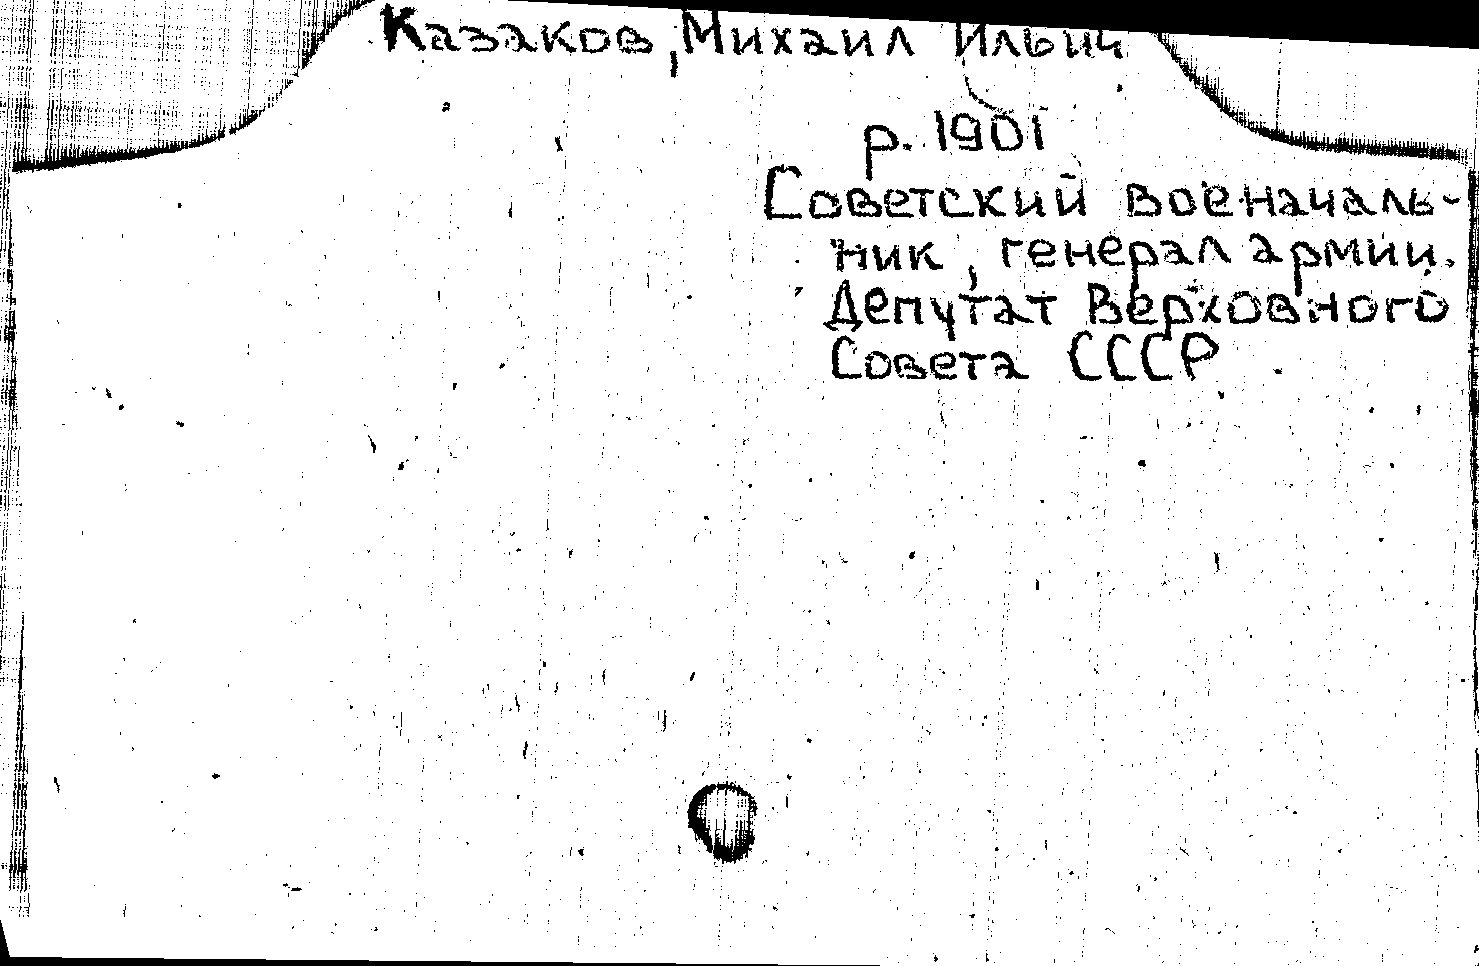 Казаков, Михаил Ильич
р. 1901
Советский военачаль-
ник, генерал армии.
Депутат Верховного
Совета СССР